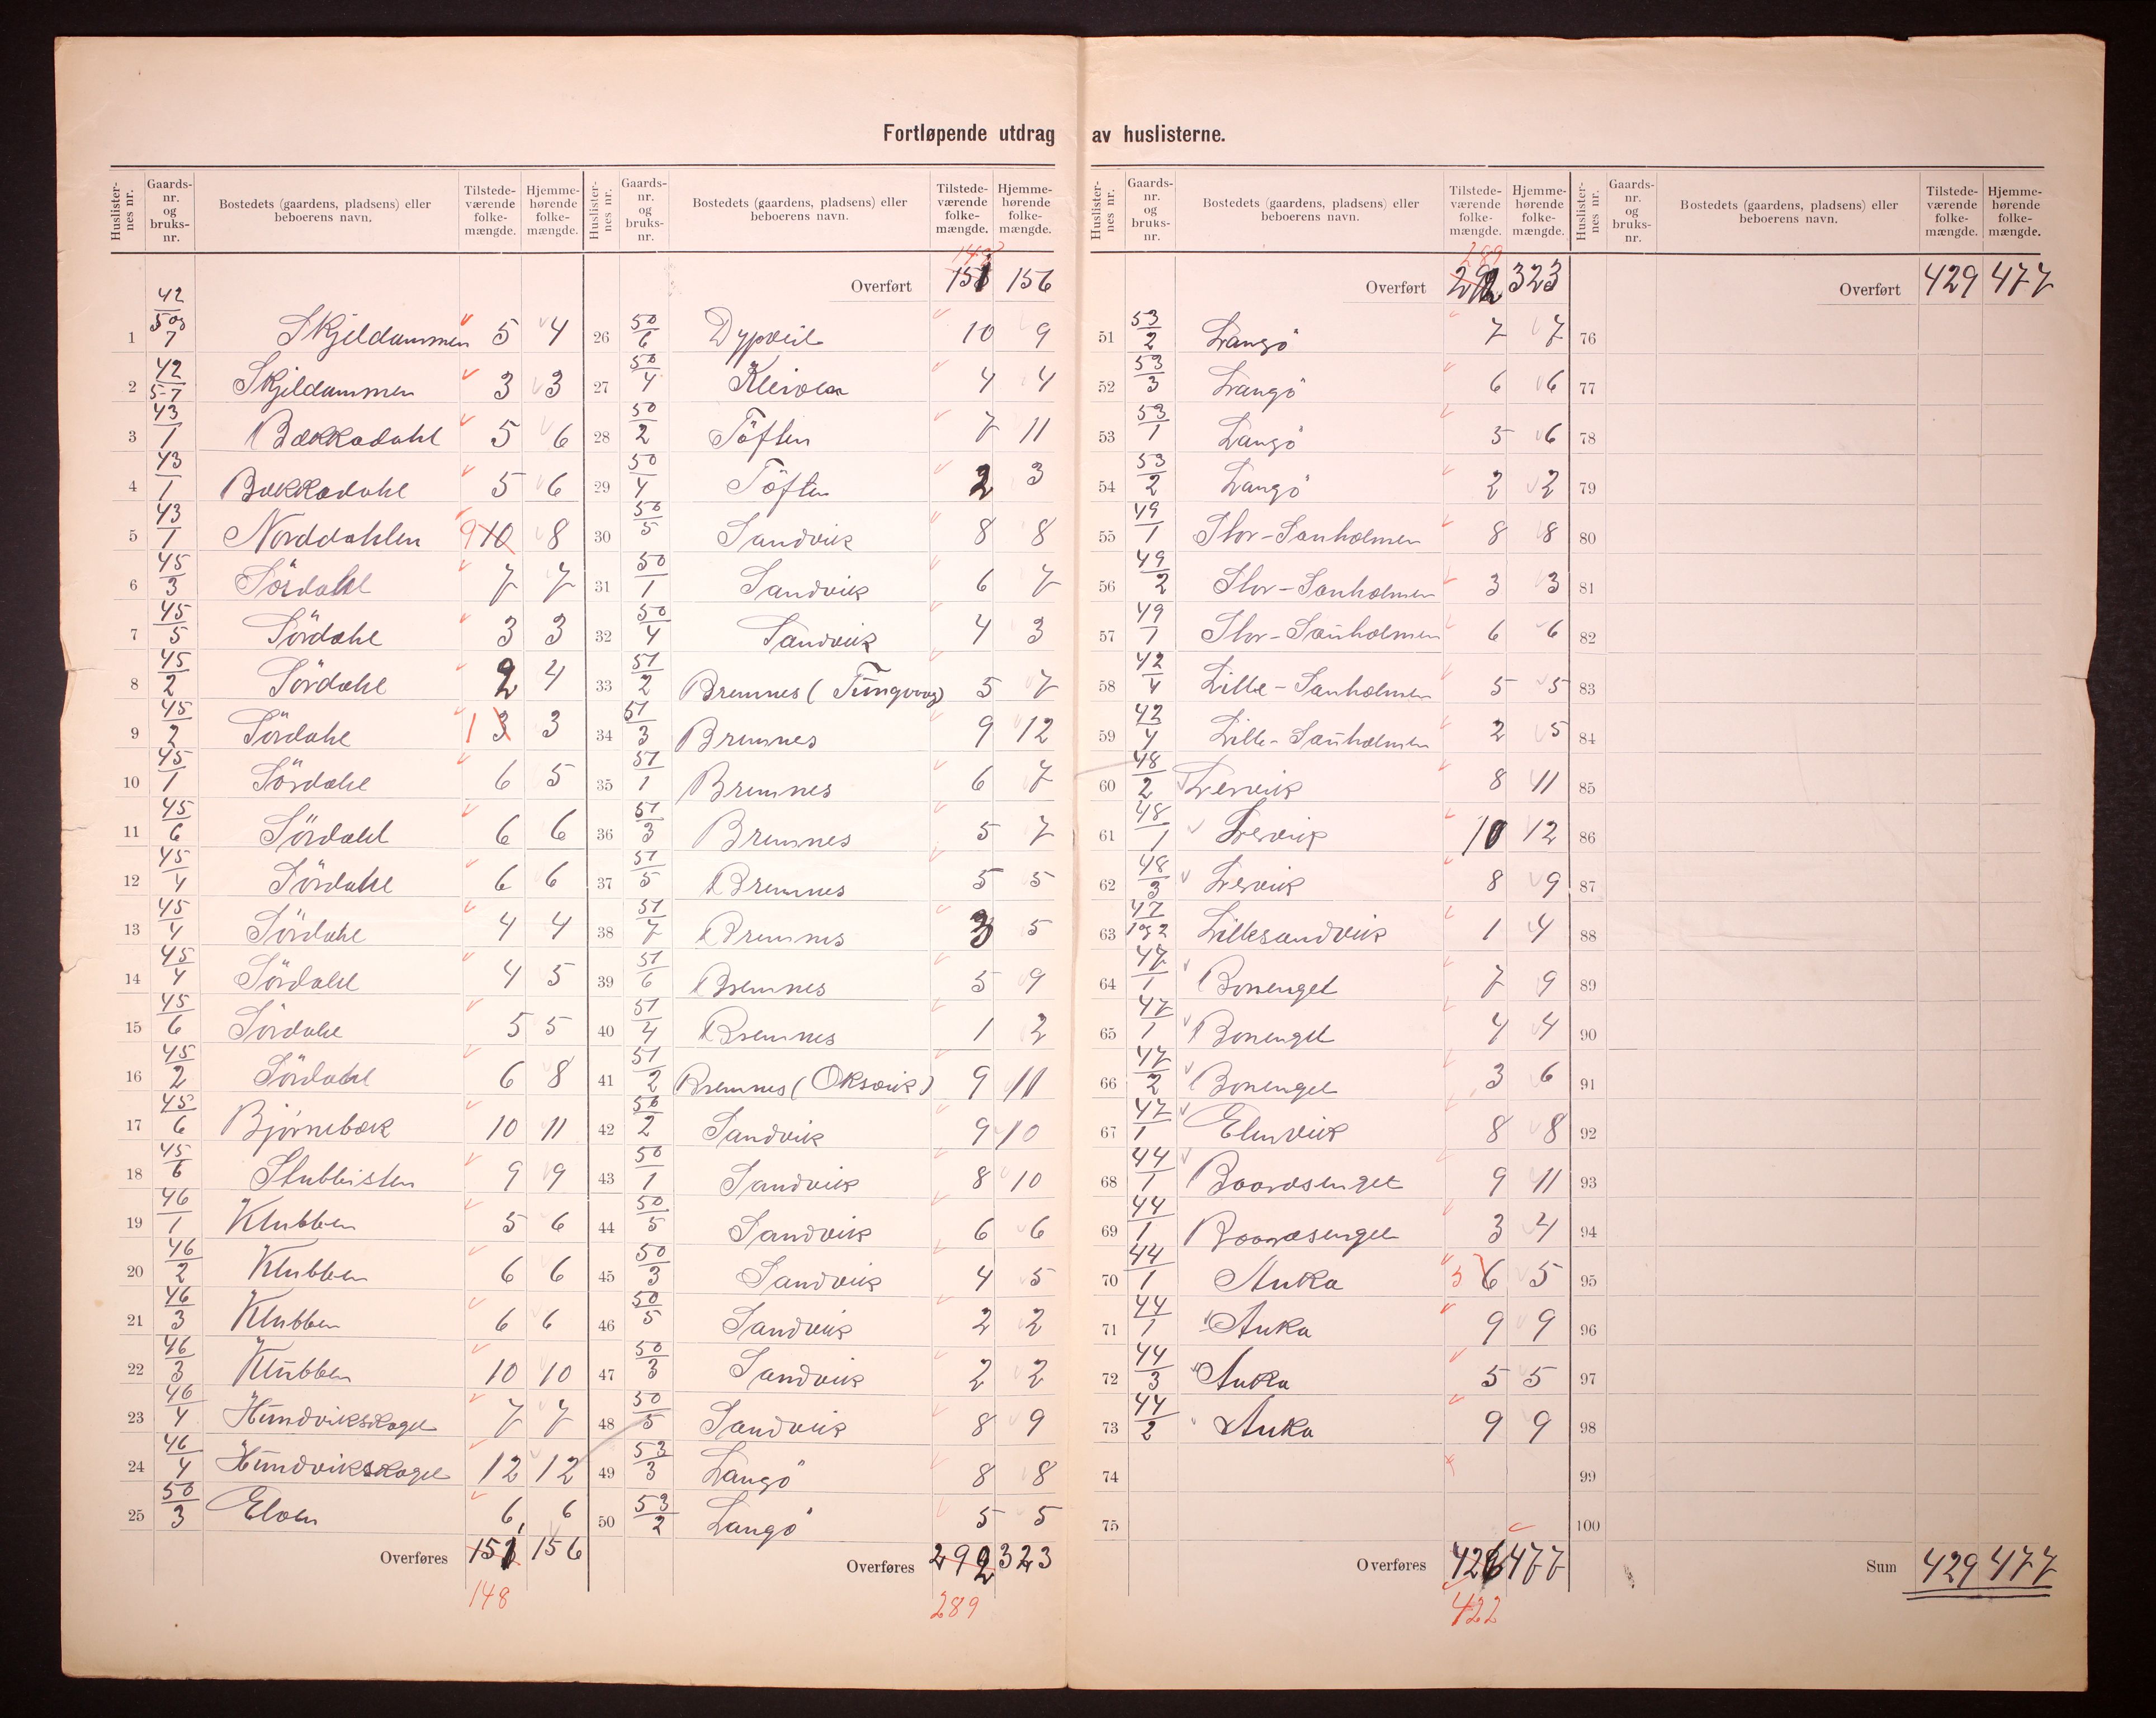 Fortløpende utdrag av huslisterne.
Huslister-nes nr. | Gaards-nr. og bruks-nr. | Bostedets (gaardens, pladsens) eller beboerens navn. | Tilstede-værende folke-mængde. | Hjemme-hørende folke-mængde.
1 42/5 og 7 Skjeldammen 5 4
2 42/5-7 Skjeldammen 3 3
3 43/1 Bækkadahl 5 6
4 43/1 Bækkadahl 5 6
5 43/1 Norddahlen 9 10 8
6 45/3 Sördahl 7 7
7 45/5 Sördahl 3 3
8 45/2 Sördahl 2 4
9 45/2 Sördahl 1 3 3
10 45/1 Sördahl 6 5
11 45/6 Sördahl 6 6
12 45/4 Sördahl 6 6
13 45/4 Sördahl 4 4
14 45/4 Sördahl 4 5
15 45/6 Sördahl 5 5
16 45/2 Sördahl 6 8
17 45/6 Bjørnebæk 10 11
18 45/6 Stubbisten 9 9
19 46/1 Klubben 5 6
20 46/2 Klubben 6 6
21 46/3 Klubben 6 6
22 46/3 Klubben 10 10
23 46/4 Hundvikskagel 7 7
24 46/4 Hundvikskagel 12 12
25 50/3 Elven 6 6
Overføres 151 156
148
Huslister-nes nr. | Gaards-nr. og bruks-nr. | Bostedets (gaardens, pladsens) eller beboerens navn. | Tilstede-værende folke-mængde. | Hjemme-hørende folke-mængde.
148
Overført 151 156
26 50/6 Dypveil 10 9
27 50/4 Kleiven 4 4
28 50/2 Töften 7 11
29 50/4 Töften 2 3
30 50/5 Sandvik 8 8
31 50/1 Sandvik 6 7
32 50/4 Sandvik 4 3
33 51/2 Bremnes (Tungvaag) 5 7
34 51/3 Bremnes 9 12
35 51/1 Bremnes 6 7
36 51/3 Bremnes 5 7
37 51/5 Bremnes 5 5
38 51/7 Bremnes 3 5
39 51/6 Bremnes 5 9
40 51/4 Bremnes 1 2
41 51/2 Bremnes (Oksvik) 9 11
42 50/2 Sandvik 9 10
43 50/1 Sandvik 8 10
44 50/5 Sandvik 6 6
45 50/3 Sandvik 4 5
46 50/5 Sandvik 2 2
47 50/3 Sandvik 2 2
48 50/5 Sandvik 8 9
49 53/3 Langö 8 8
50 53/2 Langö 5 5
Overføres 292 323
289
Huslister-nes nr. | Gaards-nr. og bruks-nr. | Bostedets (gaardens, pladsens) eller beboerens navn. | Tilstede-værende folke-mængde. | Hjemme-hørende folke-mængde.
289
Overført 292 323
51 53/2 Langö 7 7
52 53/3 Langö 6 6
53 53/1 Langö 5 6
54 53/2 Langö 2 2
55 49/1 Stor-Sanholmen 8 8
56 49/2 Stor-Sanholmen 3 3
57 49/1 Stor-Sanholmen 6 6
58 42/4 Lille-Sanholmen 5 5
59 42/4 Lille-Sanholmen 2 5
60 48/2 Lervik 8 11
61 48/1 Lervik 10 12
62 48/3 Lervik 8 9
63 47/1 og 2 Lillesandvik 1 4
64 47/1 Bonenget 7 9
65 47/1 Bonenget 4 4
66 47/2 Bonenget 3 6
67 47/1 Elmvik 8 8
68 44/1 Baardsenget 9 11
69 44/1 Baardsenget 3 4
70 44/1 Auka 5 6 5
71 44/1 Auka 9 9
72 44/3 Auka 5 5
73 44/2 Auka 9 9
74
75
Overføres 426 477
422
Huslister-nes nr. | Gaards-nr. og bruks-nr. | Bostedets (gaardens, pladsens) eller beboerens navn. | Tilstede-værende folke-mængde. | Hjemme-hørende folke-mængde.
Overført 429 477
76
77
78
79
80
81
82
83
84
85
86
87
88
89
90
91
92
93
94
95
96
97
98
99
100
Sum 429 477